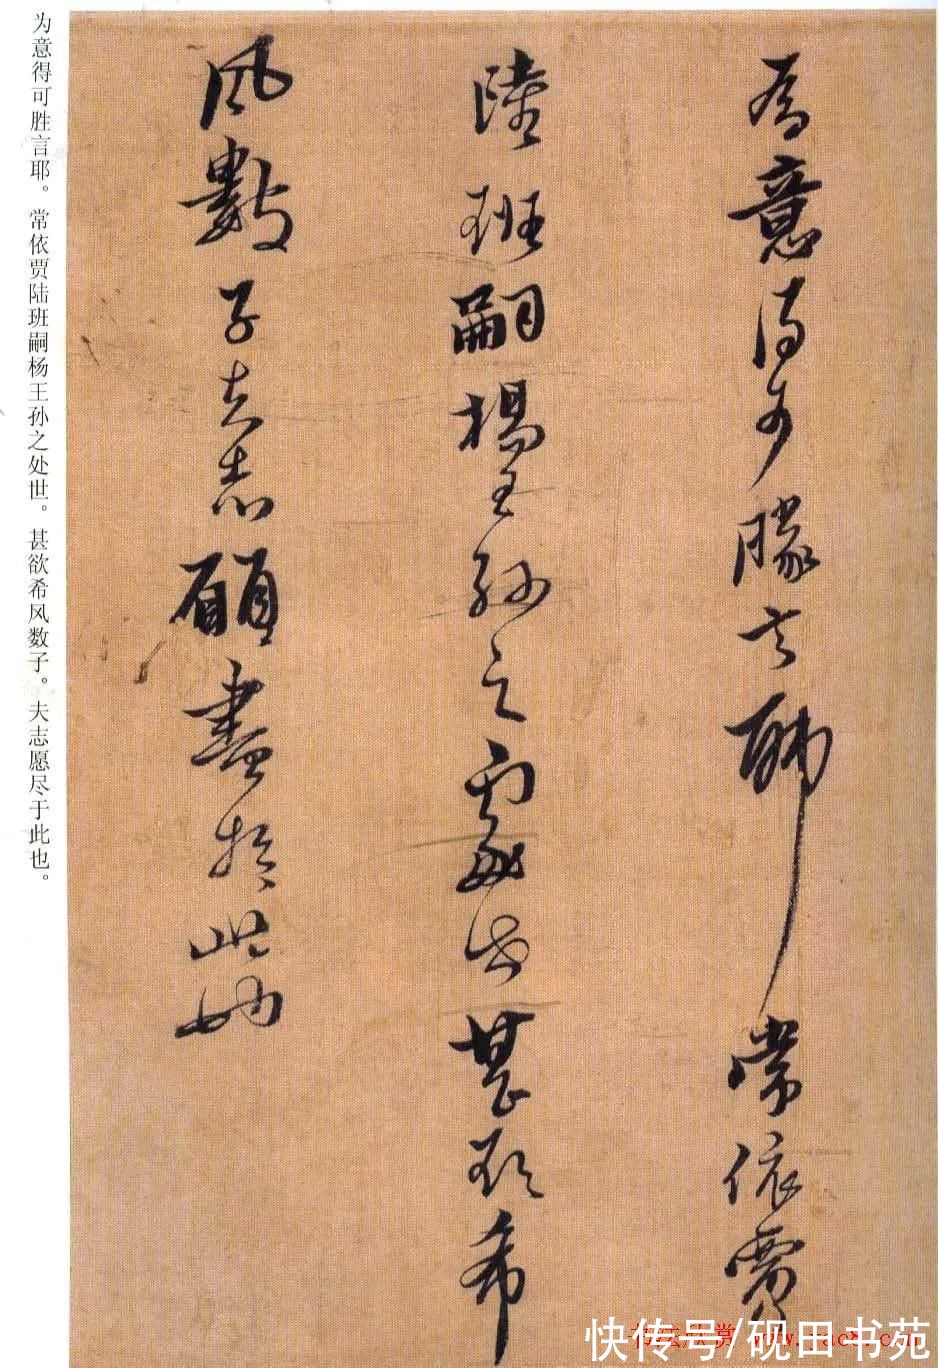 为意得可胜言耶。常依贾陆班嗣杨王孙之处世。甚欲希风数子。夫志愿尽于此也。
為意得可勝言耶常依賈
陸班嗣楊王孫之處世甚欲希
風數子夫志願盡於此也
快传号/砚田书苑